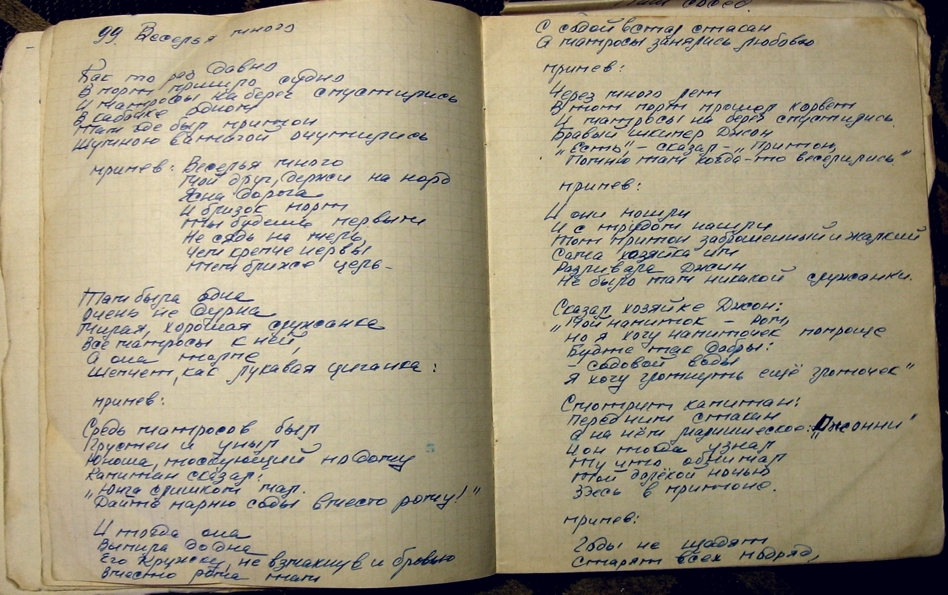 99. Веселья много
Как то раз давно
В порт пришло судно
И матросы на берег спустились
В кабачке одном
Там где был притон
Шумною ватагой очутились
припев: Веселья много
Мой друг, держи на норд
Ясна дорога
И близок порт
Ты будешь первым
Не сядь на мель,
Чем крепче нервы
Тем ближе цель.
Там была одна
Очень не дурна
Милая, хорошая служанка
Все матросы к ней,
А она
Шепчет, как лукавая цыганка:
припев:
Средь матросов был
Грустен и уныл
Юноша, тоскующий по дому
Капитан сказал:
"Юнга слишком мал.
Дайте парню соды вместо рому!"
И тогда она
Выпила до дна
Его кружку, не взмахнув и бровью
Вместо рома там
С содой встал стакан
А матросы занялись любовью
припев:
Через много лет
В тот порт пришол корвет
И матросы на берег спустились.
Бравый шкипер Джон
"Есть" - сказал - "Притон,
Помню там когда-то веселились"
припев:
И они пошли
И с трудом нашли
Тот притон заброшенный и жалкий
Сама хозяйка им
Разливала Джин
Не было там никакой служанки.
Сказал хозяйке Джон:
"Мой напиток - Ром,
Но я хочу напиточек попроще
Будте так добры:
- содовой воды
Я хочу глотнуть ещё глоточек"
Смотрит капитан:
Перед ним стакан
А на нём мальчишеское: "Джонни"
И он тогда узнал
Ту что обнимал
Той далёкой ночью
Здесь в притоне.
припев:
Годы не щадят
Старят всех подряд,